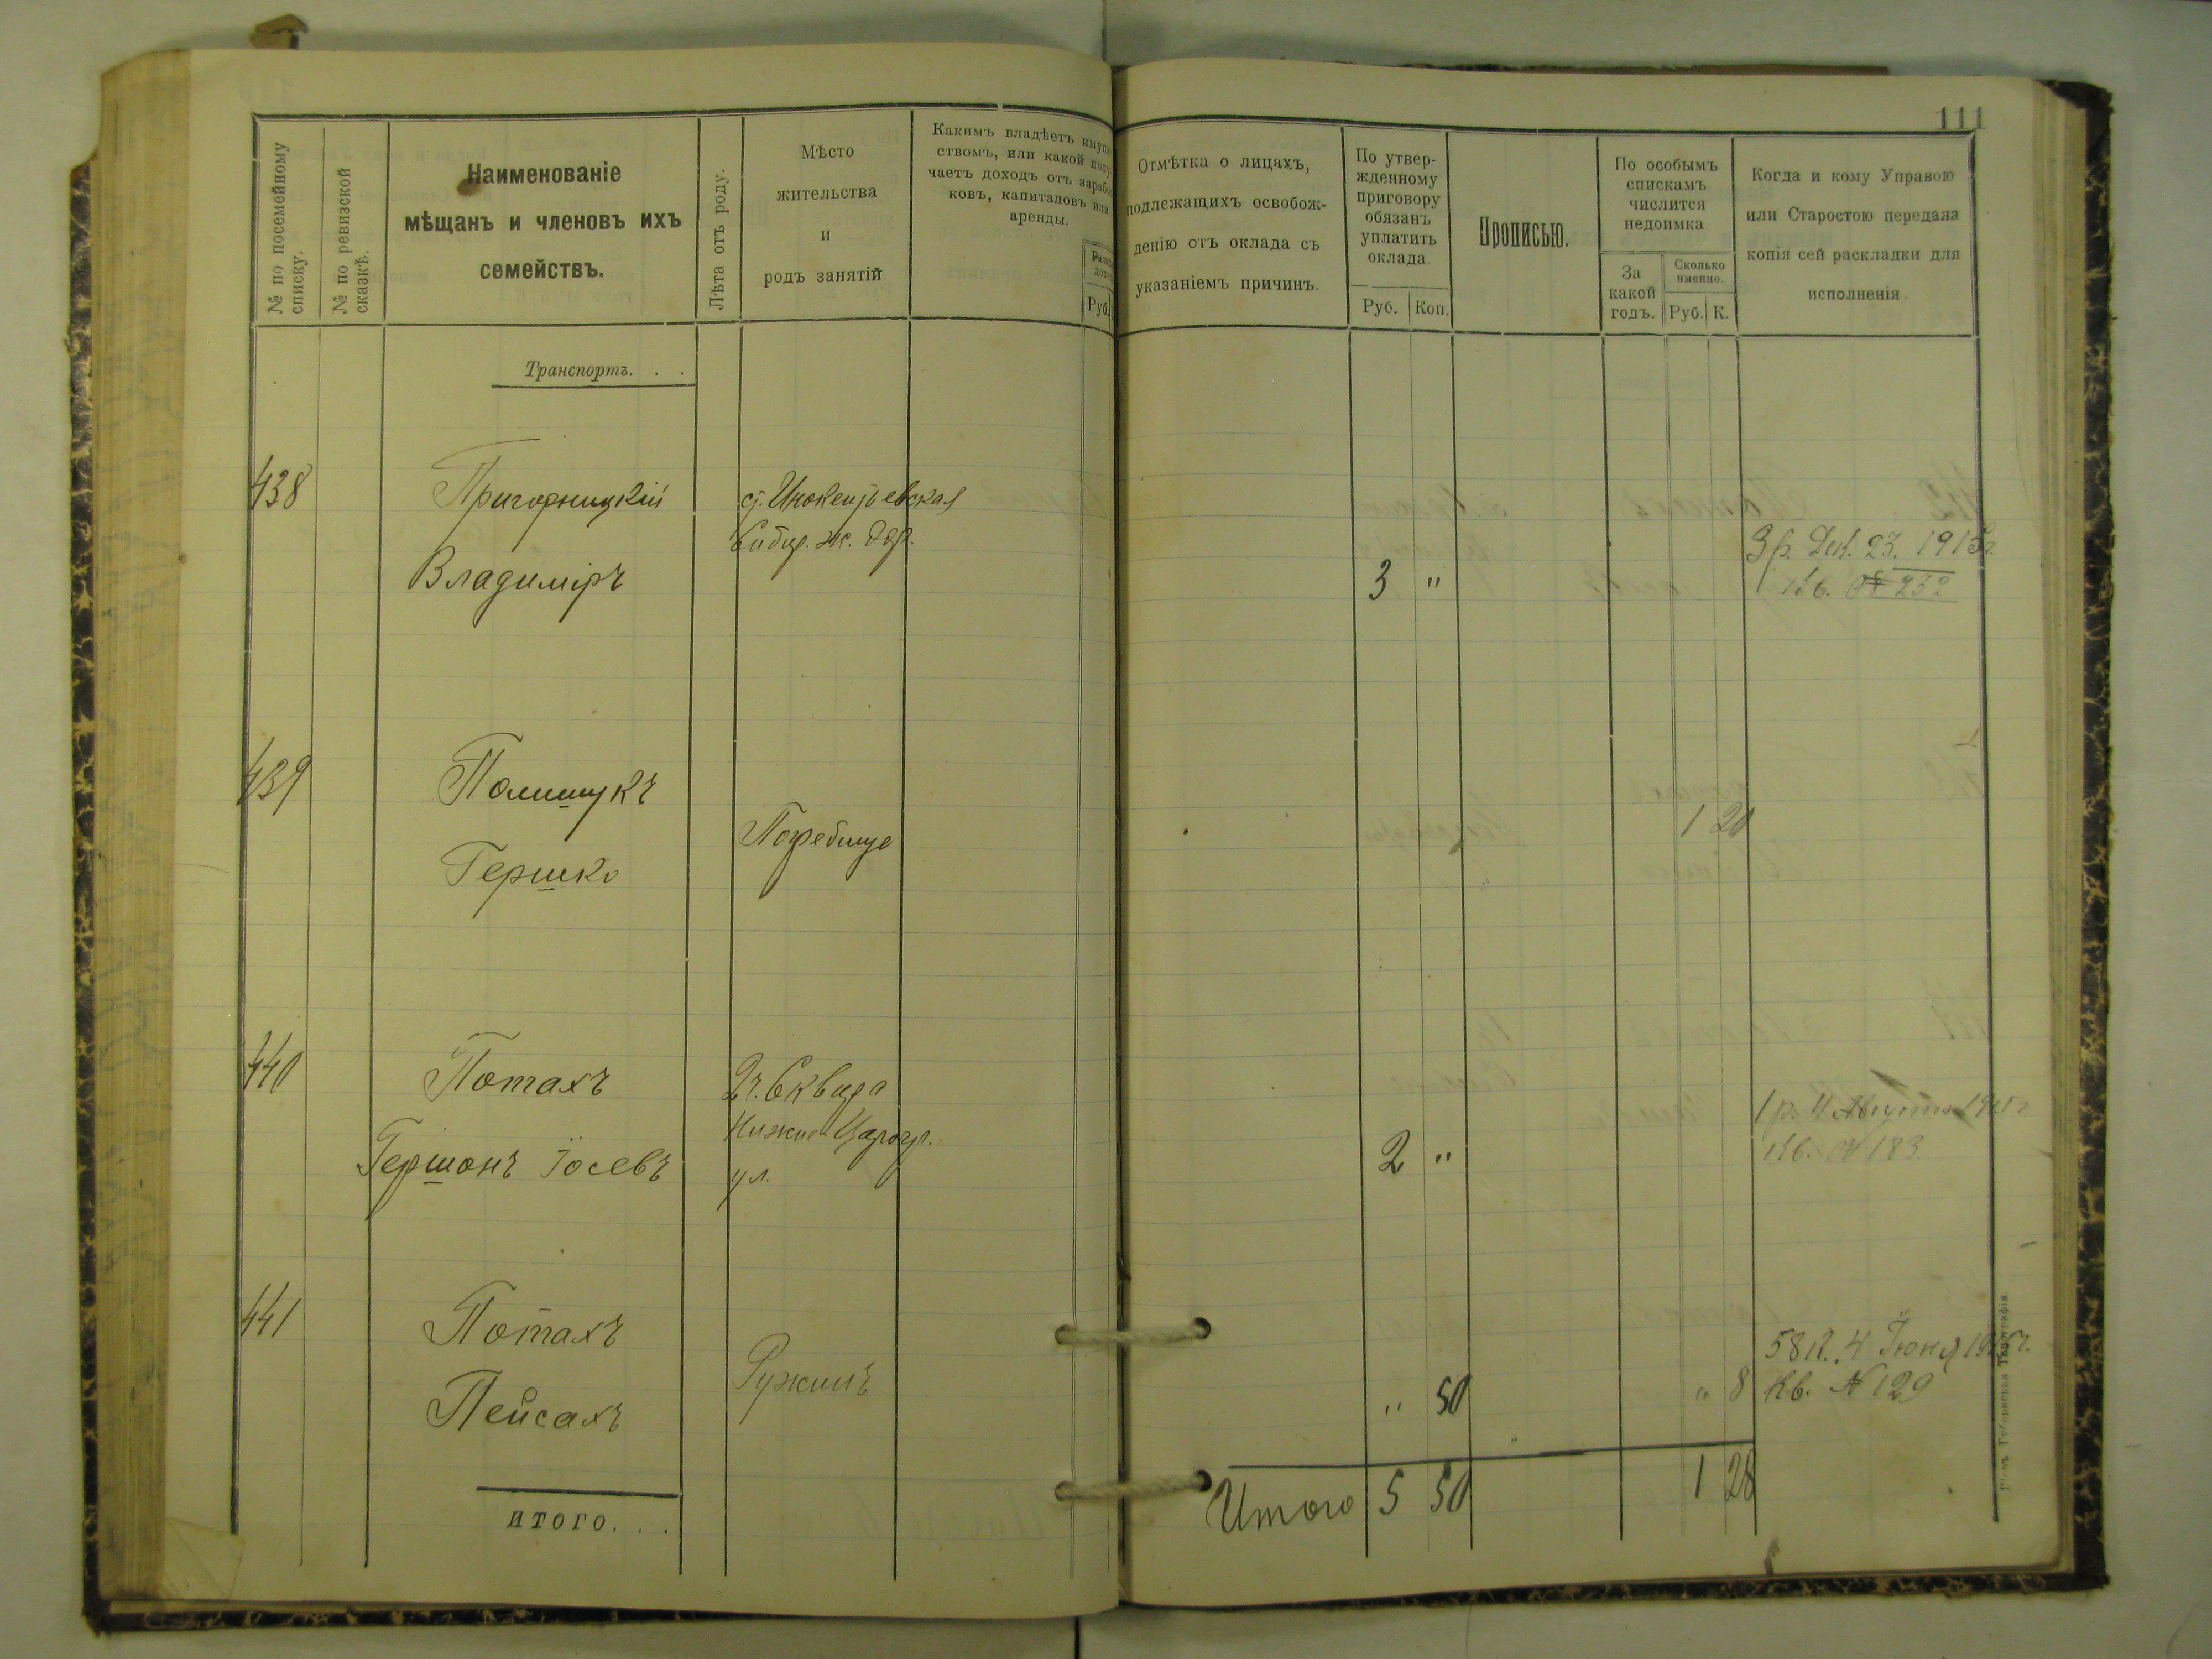 111
№ по посемейному
списку.
№ по ревизской
сказкѣ.
Наименованіе
мѣщанъ и членовъ ихъ
семействъ.
Лѣта отъ роду.
Мѣсто
жительства
и
родъ занятій
Какимъ владѣетъ имуще
ствомъ, или какой полу
чаетъ доходъ отъ зарабо
ковъ, капиталовъ или
аренды.
Руб.
Отмѣтка о лицахъ,
подлежащихъ освобож-
денію отъ оклада съ
указаніемъ причинъ.
По утвер-
жденному
приговору
обязанъ
уплатить
оклада
Руб. Коп.
Прописью.
По особымъ
спискамъ
числится
недоимка
За
какой
годъ.
Сколько
именно.
Руб. К.
Когда и кому Управою
или Старостою передана
копія сей раскладки для
исполненія.
Транспортъ. . .
438 Пригорницкій ст. Инокентьевская
Сибир. ж. дор. 3р. Дек. 23. 1915г
Владиміръ 3 " Кв. № 232
439 Полишукъ
Погребище 1 20
Гершко
440 Потахъ 2ч. Сквира
Нижне Царогр. 1р. 11 Августа 1915г
Гершонъ Іосевъ ул. 2 " Кв. № 183
441 Потахъ 58 К. 4 Іюня 1915г.
Ружинъ " 50 " 8 Кв. № 129
Пейсахъ
итого. . .
Итого 5 50 1 28